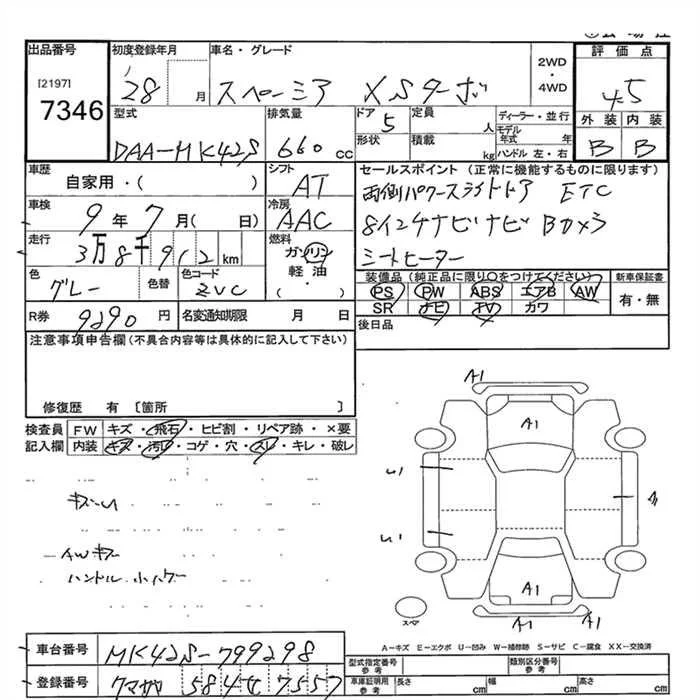 出品番号
[2197]
7346
初度登録年月
'28 月
車名・グレード
スペーシア XSターボ
2WD
・
4WD
評価点
4.5
外装 内装
B B
型式
DAA-MK42S
排気量
660 cc
ドア
5
形状
定員
人
積載
kg
ディーラー・並行
モデル
年式 年
ハンドル 左・右
車歴
自家用・( )
シフト
AT
車検
9年 7月( 日)
冷房
AAC
走行
3万8千912 km
燃料
ガソリン
軽・油
・( )
色
グレー
色替
色コード
ZVC
R券
9290 円
名変通知期限 月 日
セールスポイント (正常に機能するものに限ります)
両側パワースライドドア ETC
8インチナビナビ Bカメラ
シートヒーター
装備品(純正品に限り○をつけてください)
PS PW ABS エアB AW
SR ナビ TV カワ
新車保証書
有・無
後日品
注意事項申告欄(不具合内容等は具体的に記入して下さい)
修復歴 有 〔箇所 〕
検査員
記入欄
FW キズ・飛石・ヒビ割・リペア跡・×要
内装 キズ・汚れ・コゲ・穴・スレ・キレ・破レ
キズ・U
AWキズ
ハンドル
A1
A1
U1
U1
A1
A1
A1
スペア
A-キズ E-エクボ U-凹み W-補修跡 S-サビ C-腐食 XX-交換済
車台番号
MK42S-799298
登録番号
型式指定番号
参考
類別区分番号
参考
車庫証明用
参考
長さ cm
幅 cm
高さ cm